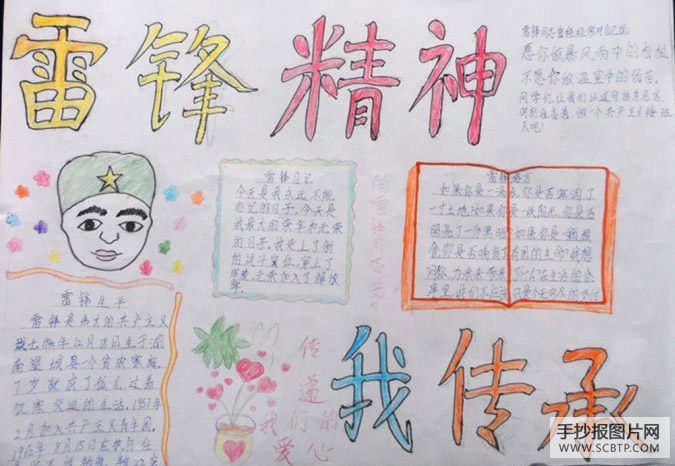 雷锋精神
雷锋同志曾经经常对自己说
愿你做暴风雨中的松柏
不愿你做温室中的弱苗
同学们让我们以这句话为名言
时刻准备着,做一个共产主义接班
人吧!
雷锋日记
今天是我永远不能
忘记的日子,今天是
我最大的荣幸和光荣
的日子,我走上了新
的战斗岗位,穿上了
军装,光荣加入了解放
军。
向雷锋同志学习
雷锋格言
如果你是一滴水,你是否滋润了
一寸土地?如果你是一线阳光,你是否
照亮了一个黑暗?如果你是一颗粮
食,你是否哺育了有用的生命?我想
问你,为未来带来了什么?在生活的仓
库里,我们不应该只是个无穷尽的支付
雷锋生平
雷锋是伟大的共产主义
战士,1940年12月18日生于湖
南望城县一个贫农家庭,
7岁就成了孤儿,过着
饥寒交迫的生活,1957年
2月加入共产主义青年团,
1962年8月15日在执行任
传递
我们的
爱心
我传承
手抄报图片网
WWW.SCBTP.COM